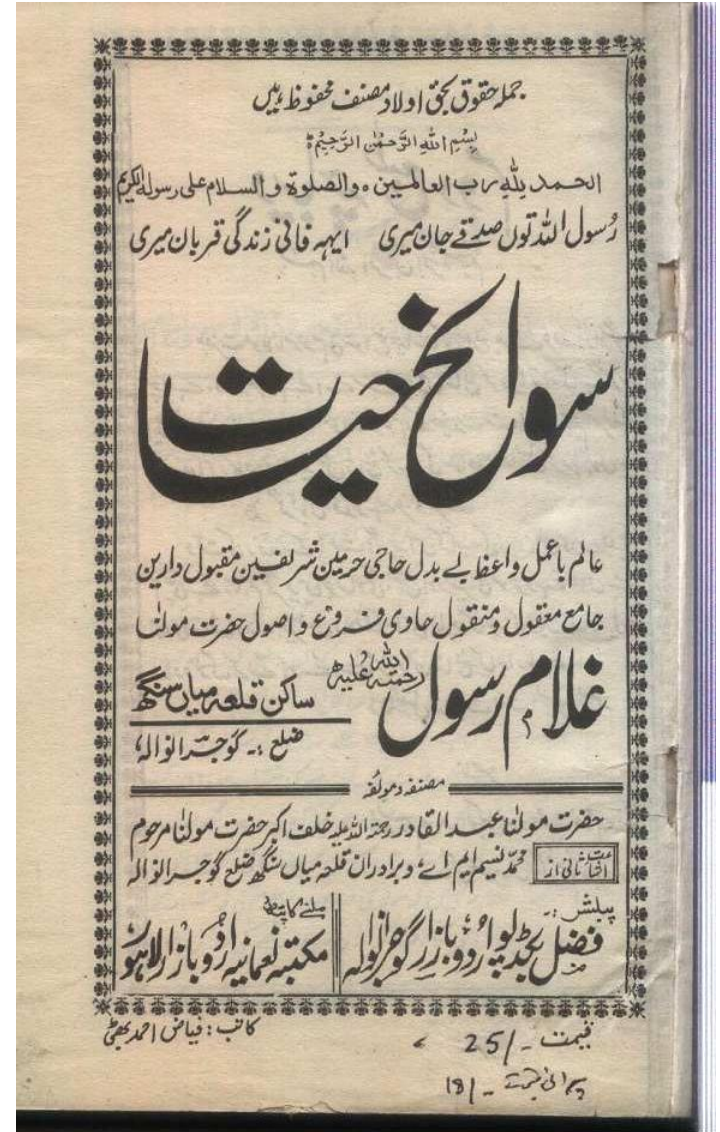 جملہ حقوق بحق اولاد مصنف محفوظ ہیں
بِسْمِ اللهِ الرَّحْمٰنِ الرَّحِيْمِ ؕ
الحمد للّٰہِ رب العالمین ہ والصلوۃ والسلام علی رسولہ الکریم
رُسول اللہ توں صدقے جان میری ایہہ فانی زندگی قربان میری
سوانح حیات
عالم باعمل واعظ بے بدل حاجی حرمین شریفین مقبول دارین
جامع معقول و منقول حاوی فروع و اصول حضرت مولٰنا
غلام رسول رحمتہ اللہ علیہ ساکن قلعہ میاں سنگھ
ضلع :۔ گوجرانوالہ
مصنفہ و مولفہ
حضرت مولٰنا عبد القادر رحمتہ اللہ علیہ خلف اکبر حضرت مولٰنا مرحوم
اشاعت ثانی از محمد نسیم ایم اے و برادران قلعہ میاں سنگھ ضلع گوجرانوالہ
پبلشر :۔
فضل بکڈپو اُردو بازار گوجرانوالہ
ملنے کا پتہ
مکتبہ نعمانیہ اُردو بازار لاہور
کاتب : فیاض احمد بھٹی
قیمت ۔/25
پرانی قیمت ۔/18